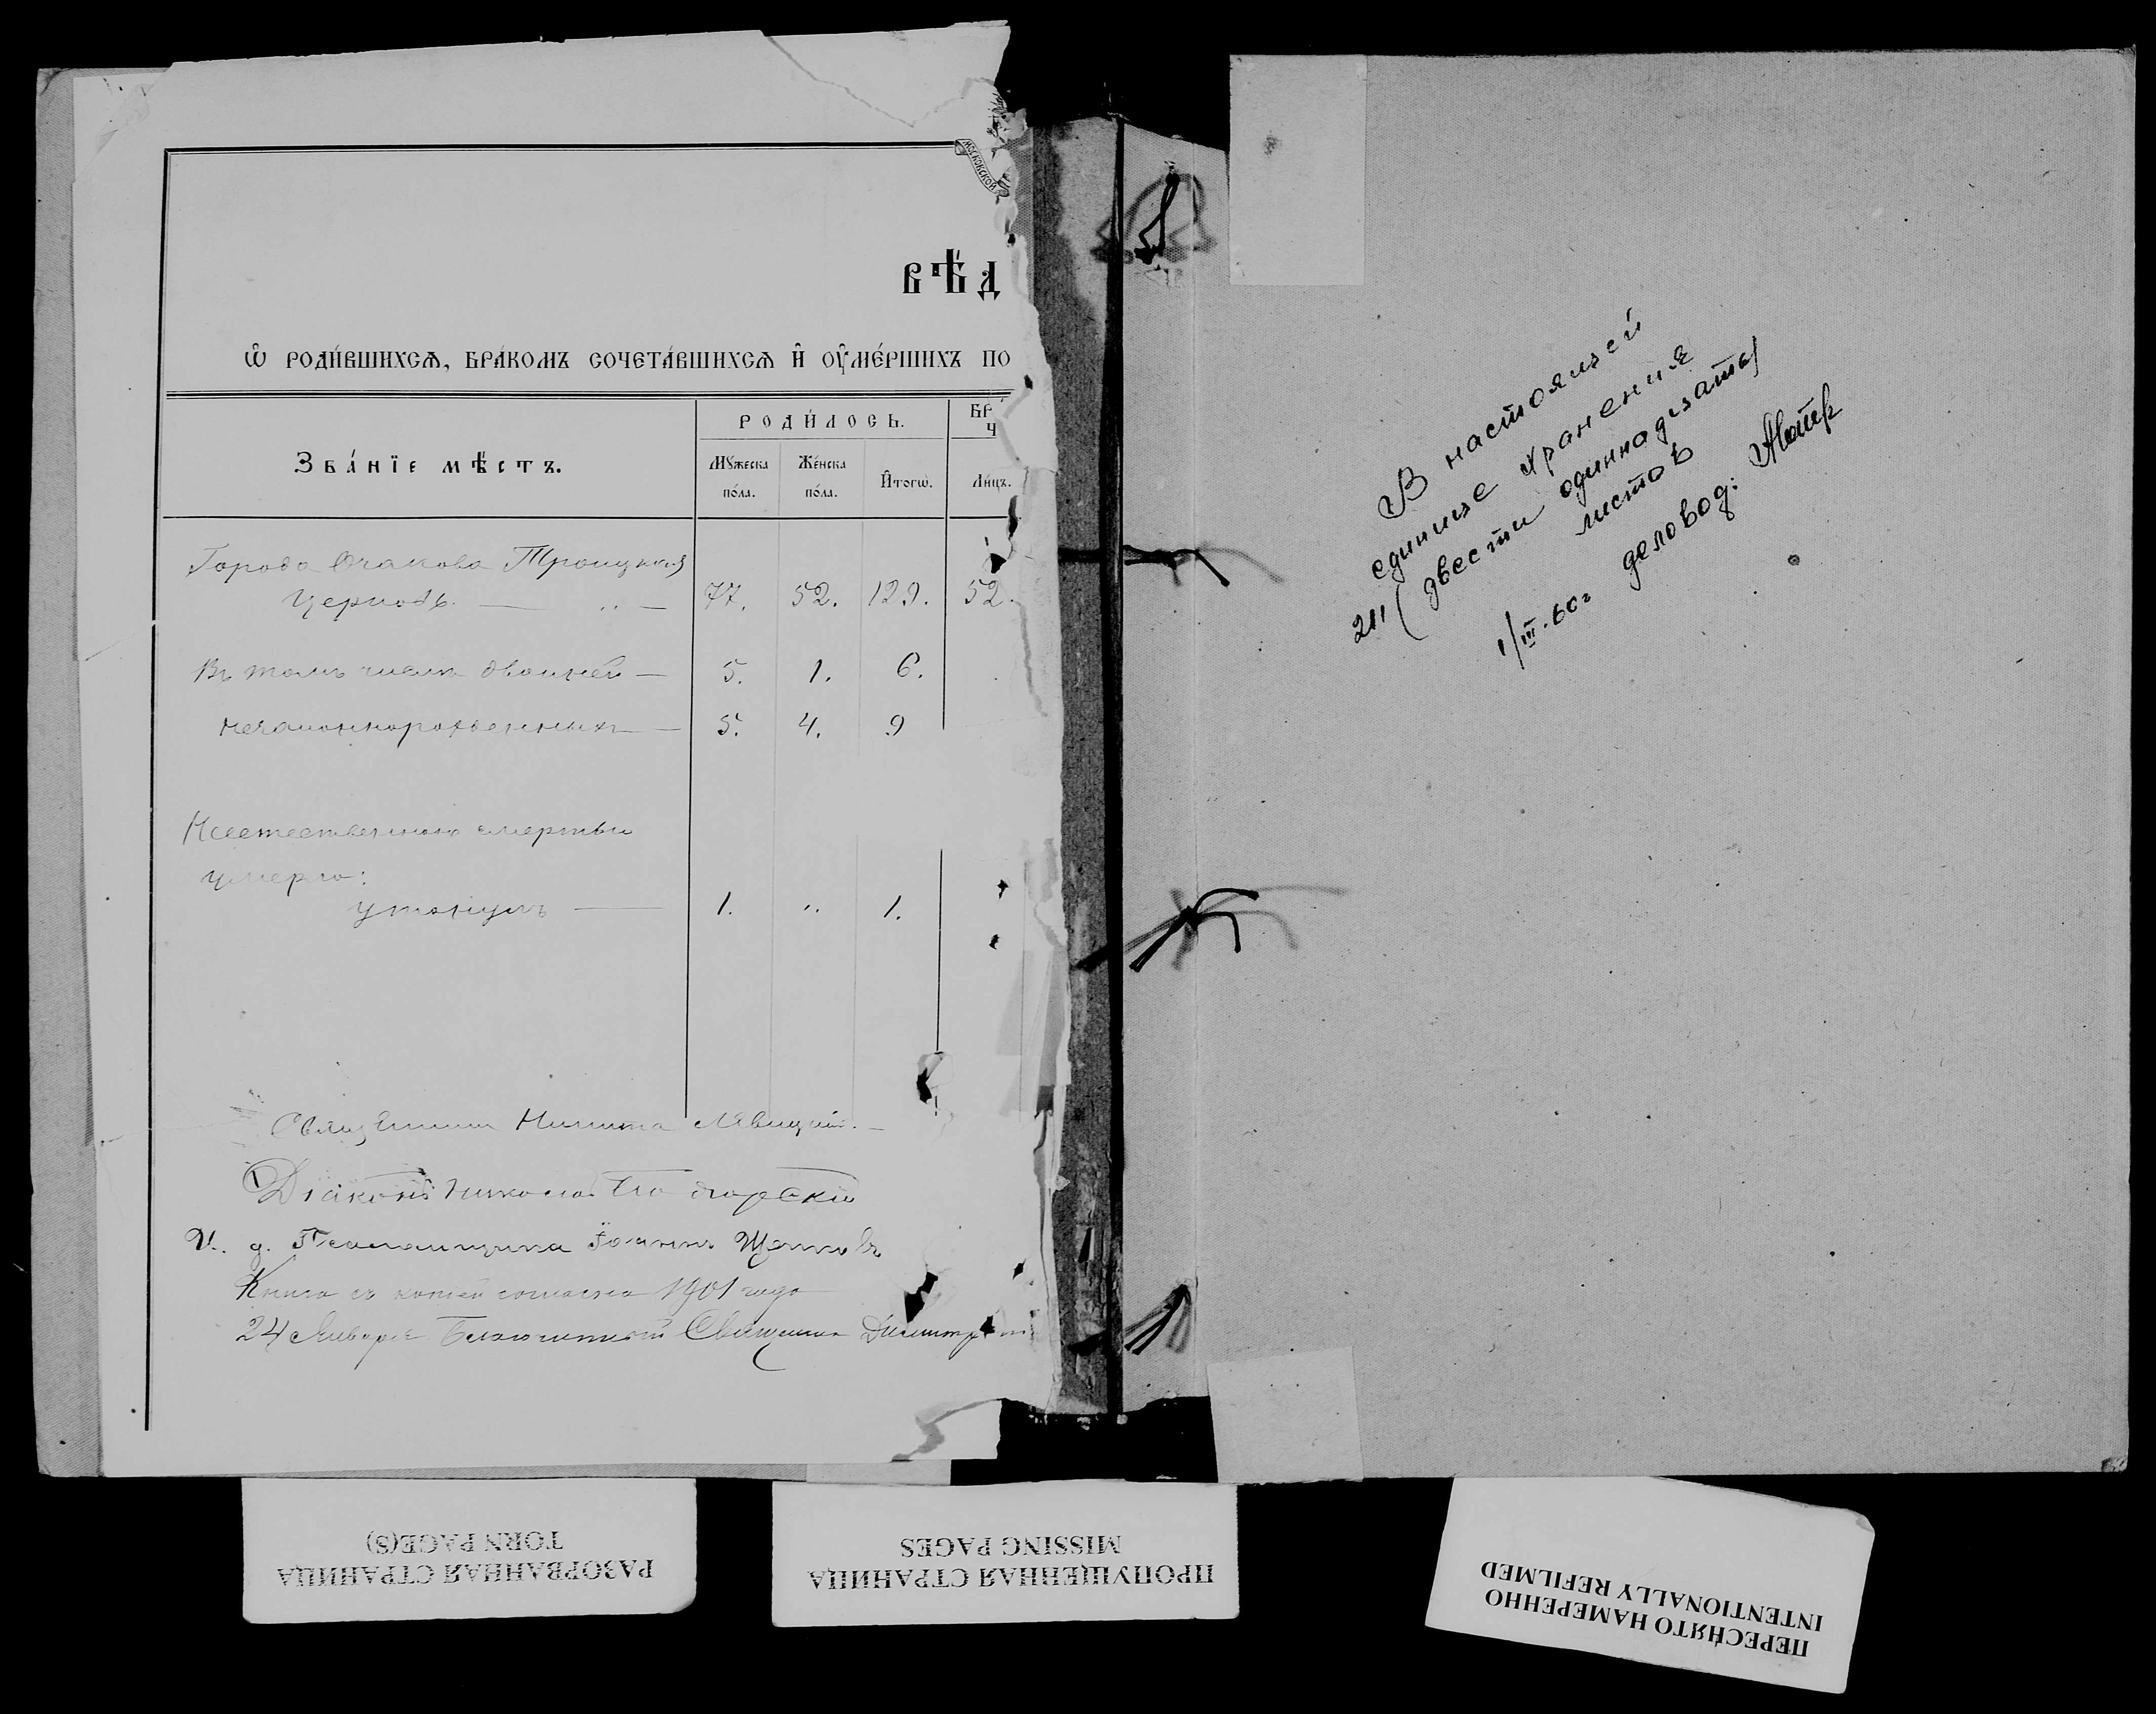 МОСКОВСКОЙ
ВѢД
Ѡ҆ РОДИ́ВШИХСѦ, БРА́КОМЪ СОЧЕТА́ВШИХСѦ И҆ ОУ҆МЕ́РШИХЪ ПО
Зва́нїе мѣ́стъ.
РОДИ́ЛОСЬ.
БР
Ч
Мꙋ́жеска по́ла.
Же́нска по́ла.
И҆тогѡ̀.
Ли́цъ.
Города Очакова Троицкая
Церковь. — „ — 77. 52. 129. 52.
Въ томъ числѣ двойней — 5. 1. 6.
незаконнорожденныхъ — 5. 4. 9
Неестественною смертью
умерло:
утонулъ — 1. „ 1.
Священникъ Никита Явицкій.
Діаконъ Николай Подгорскій
И. д. Псаломщика Іоаннъ
Книга съ копіей согласна 1901 года
24 Января Благочинный Священникъ
В настоящей
единице хранения
211 (двести одиннадцать)
листов
1/III-60г деловод:
РАЗОРВАННАЯ СТРАНИЦА
TORN PAGE(S)
ПРОПУЩЕННАЯ СТРАНИЦА
MISSING PAGES
ПЕРЕСНЯТО НАМЕРЕННО
INTENTIONALLY REFILMED